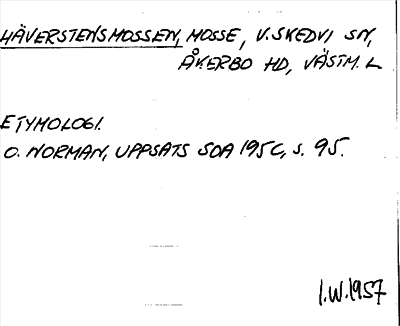 HÄVERSTENSMOSSEN, MOSSE, V. SKEDVI SN,
ÅKERBO HD, VÄSTM. L
ETYMOLOGI.
O. NORMAN, UPPSATS SOA 195C, S. 95.
I.W.1957